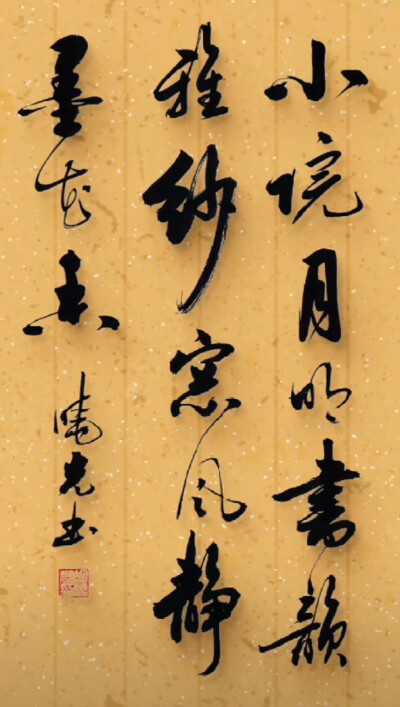 小院月明书韵
雅纱窗风静
墨花香
晓光书